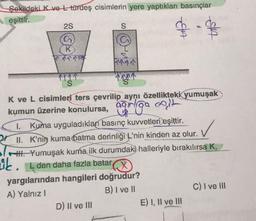 Şekildeki K ve L türdeş cisimlerin yere yaptıkları basınçlar
eşittir.
2S
S
G
G
K
L
S
S
K ve L cisimleri ters çevrilip aynı özellikteki yumuşak
kumun üzerine konulursa,
I. Kuma uyguladıkları basınç kuvvetleri eşittir.
II. K'nin kuma batma derinliği L'nin kinden az olur.
III. Yumuşak kuma ilk durumdaki halleriyle bırakılırsa K,
L den daha fazla batar.
yargılarından hangileri doğrudur?
A) Yalnız I
B) I ve II
C) I ve III
D) II ve III
E) I, II ve III